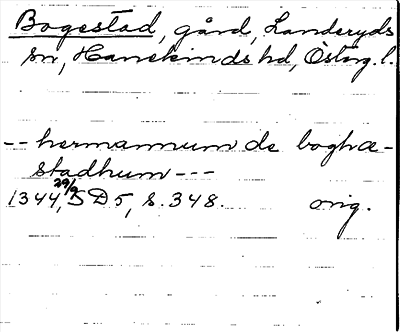 Bogestad, gård, Landeryds
sn, Hanekinds hd, Östg. l.
-- hermannum de boghæ-
stadhum ---
1344 29/9, SD 5, s. 348. orig.